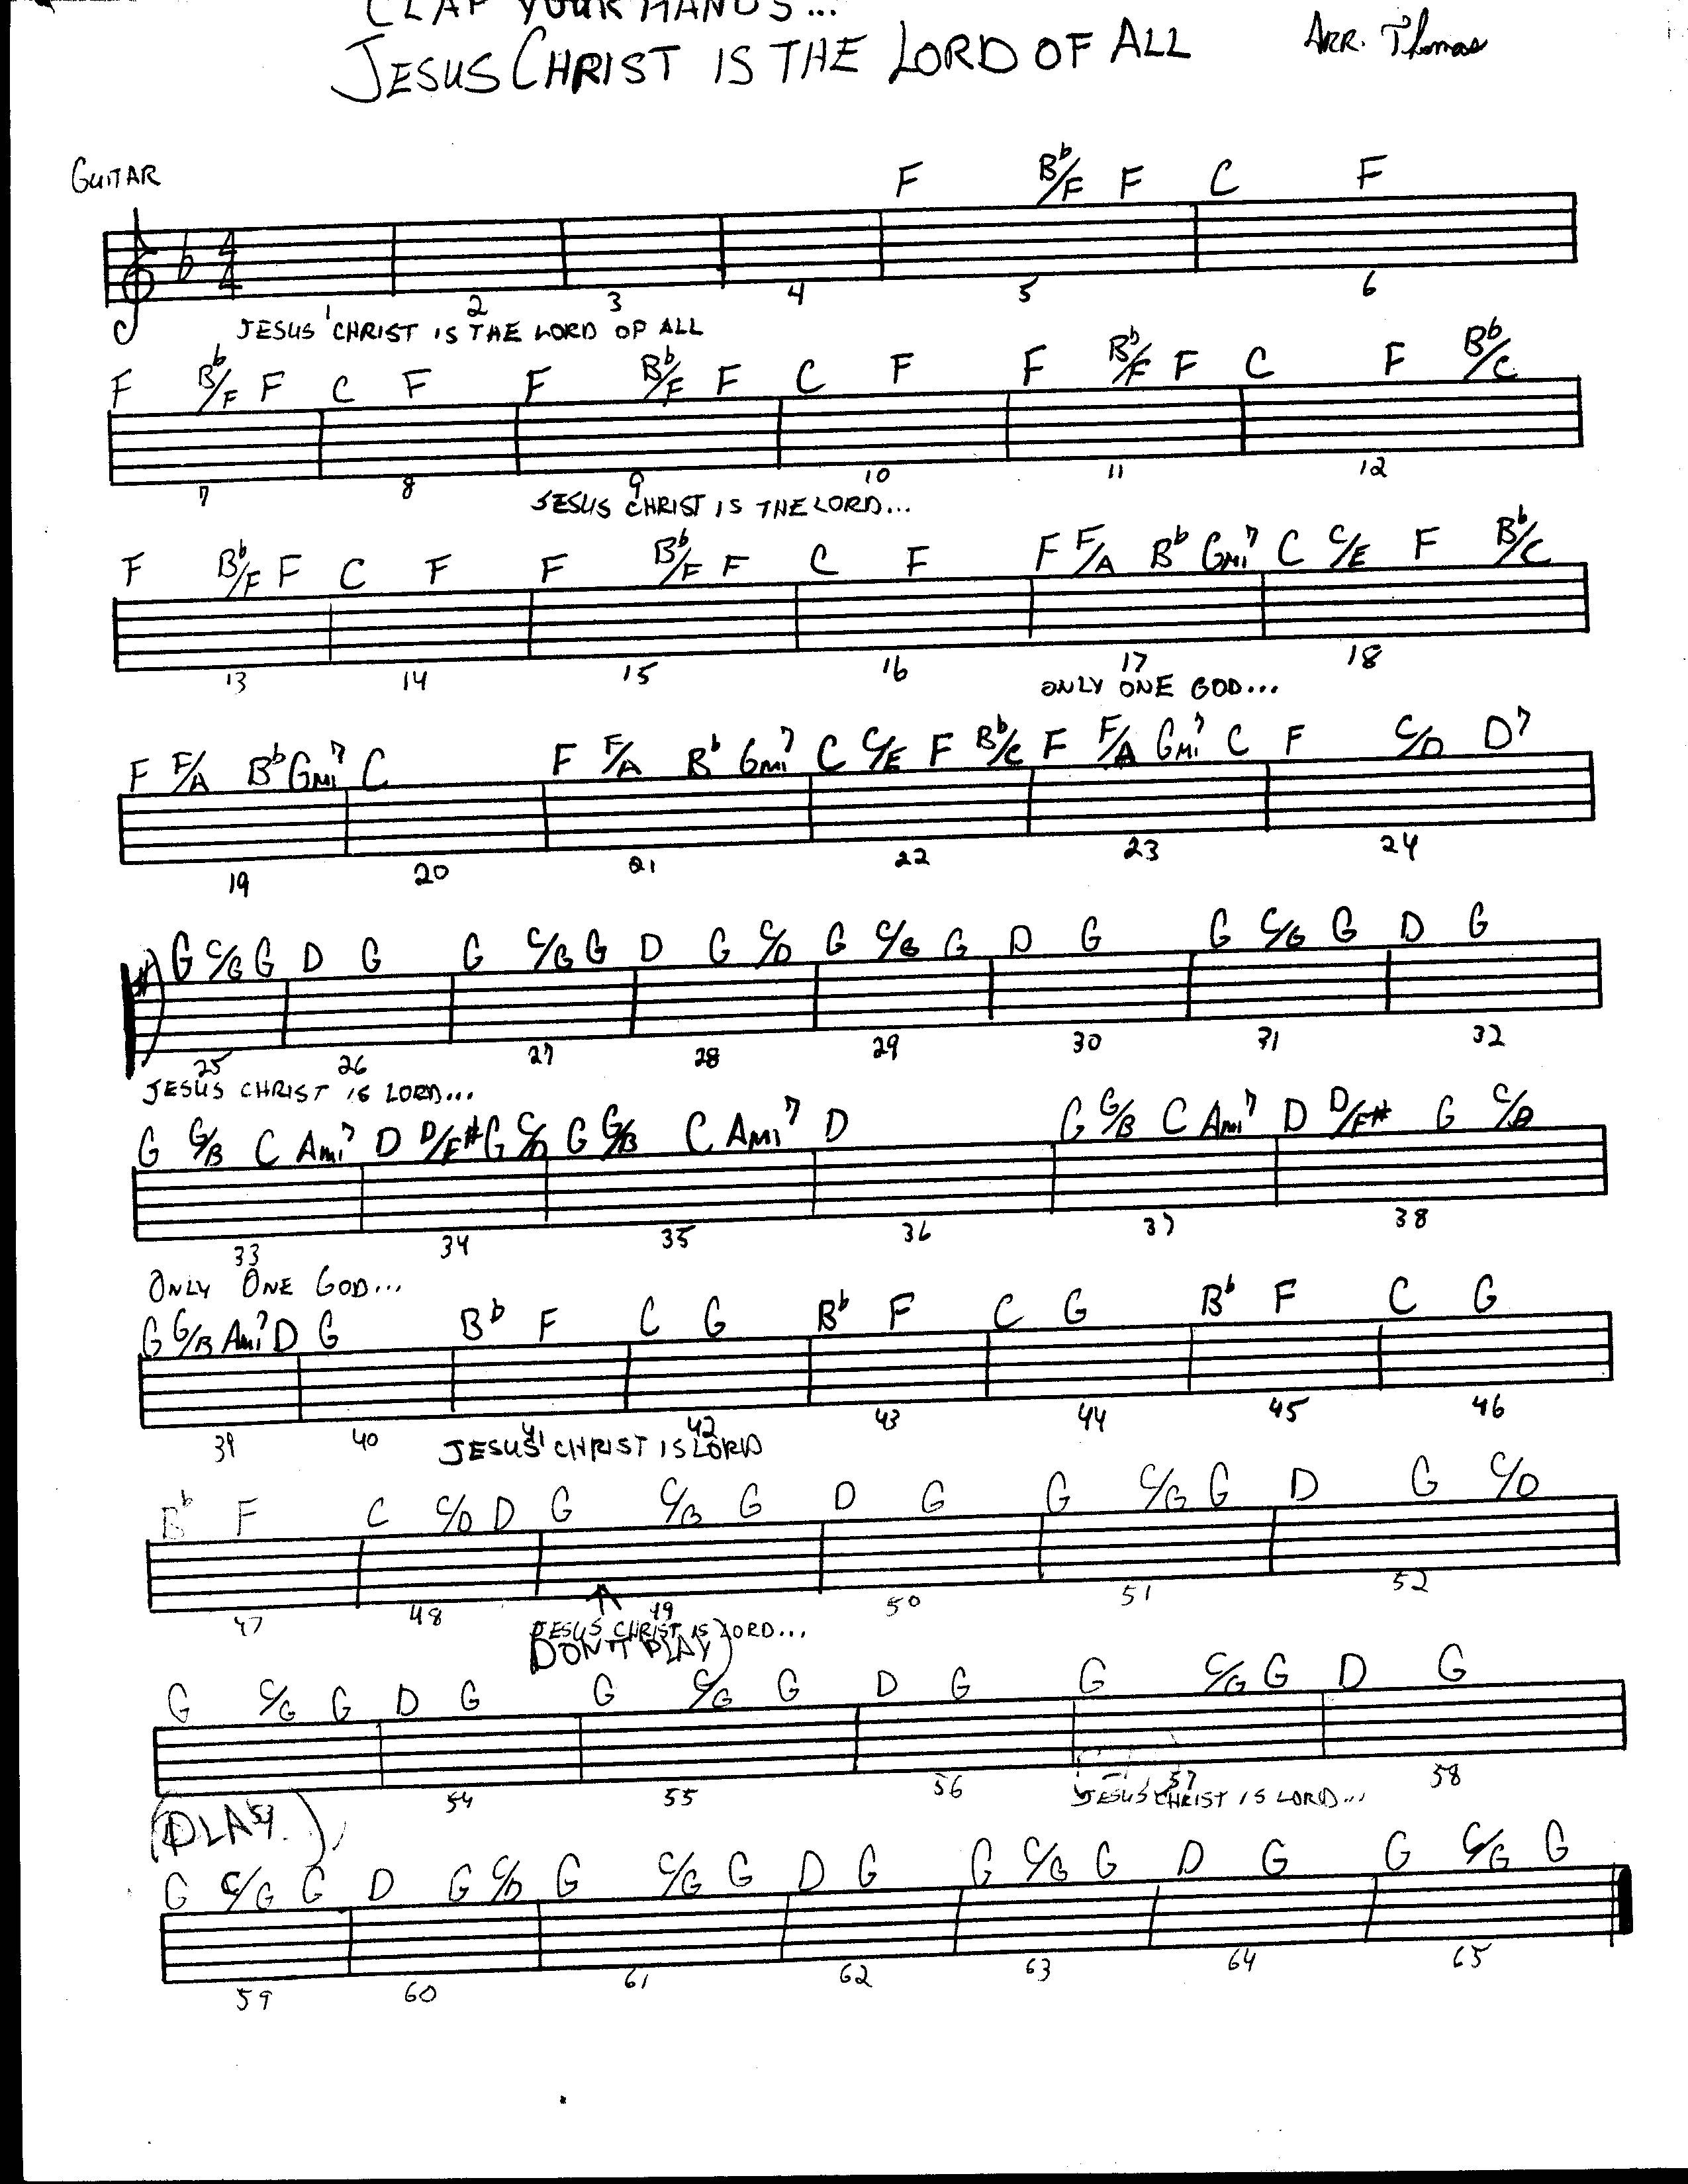 CLAP YOUR HANDS...
JESUS CHRIST IS THE LORD OF ALL ARR. Thomas
GUITAR
F B♭/F F C F
4/4
1 2 3 4 5 6
JESUS CHRIST IS THE LORD OF ALL
F B♭/F F C F F B♭/F F C F F B♭/F F C F B♭/C
7 8 9 10 11 12
JESUS CHRIST IS THE LORD...
F B♭/F F C F F B♭/F F C F F F/A B♭ GMI7 C C/E F B♭/C
13 14 15 16 17 18
ONLY ONE GOD...
F F/A B♭ GMI7 C F F/A B♭ GMI7 C C/E F B♭/C F F/A GMI7 C F C/D D7
19 20 21 22 23 24
G C/G G D G G C/G G D G C/D G C/G G D G G C/G G D G
25 26 27 28 29 30 31 32
JESUS CHRIST IS LORD...
G G/B C AMI7 D D/F# G C/D G G/B C AMI7 D G G/B C AMI7 D D/F# G C/D
33 34 35 36 37 38
ONLY ONE GOD...
G G/B AMI7 D G B♭ F C G B♭ F C G B♭ F C G
39 40 41 42 43 44 45 46
JESUS CHRIST IS LORD
B♭ F C C/D D G C/G G D G G C/G G D G C/D
47 48 49 50 51 52
JESUS CHRIST IS LORD...
DON'T PLAY)
G C/G G D G G C/G G D G G C/G G D G
53 54 55 56 57 58
(PLAY) JESUS CHRIST IS LORD...
G C/G G D G C/D G C/G G D G G C/G G D G G C/G G
59 60 61 62 63 64 65